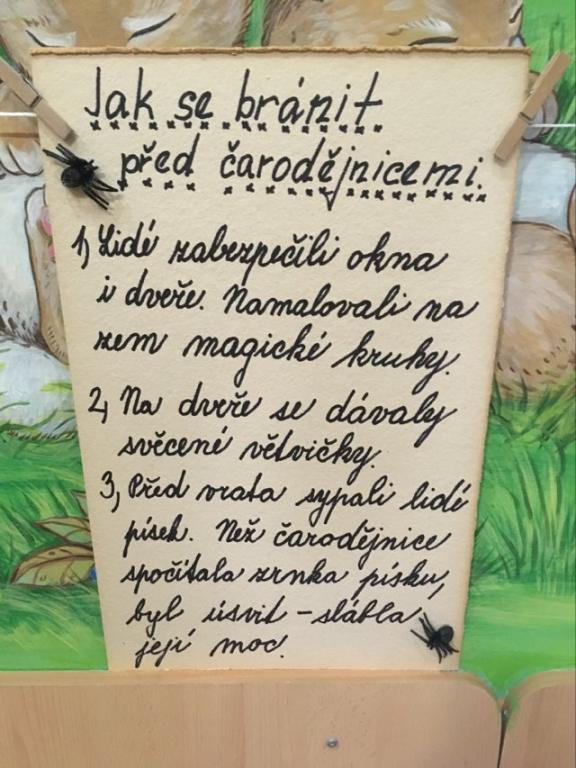 Jak se bránit
před čarodějnicemi.
1, Lidé zabezpečili okna
i dveře. Namalovali na
zem magické kruhy.
2, Na dveře se dávaly
svěcené větvičky.
3, Před vrata sypali lidé
písek. Než čarodějnice
spočítala zrnka písku,
byl úsvit – slábla
její moc.